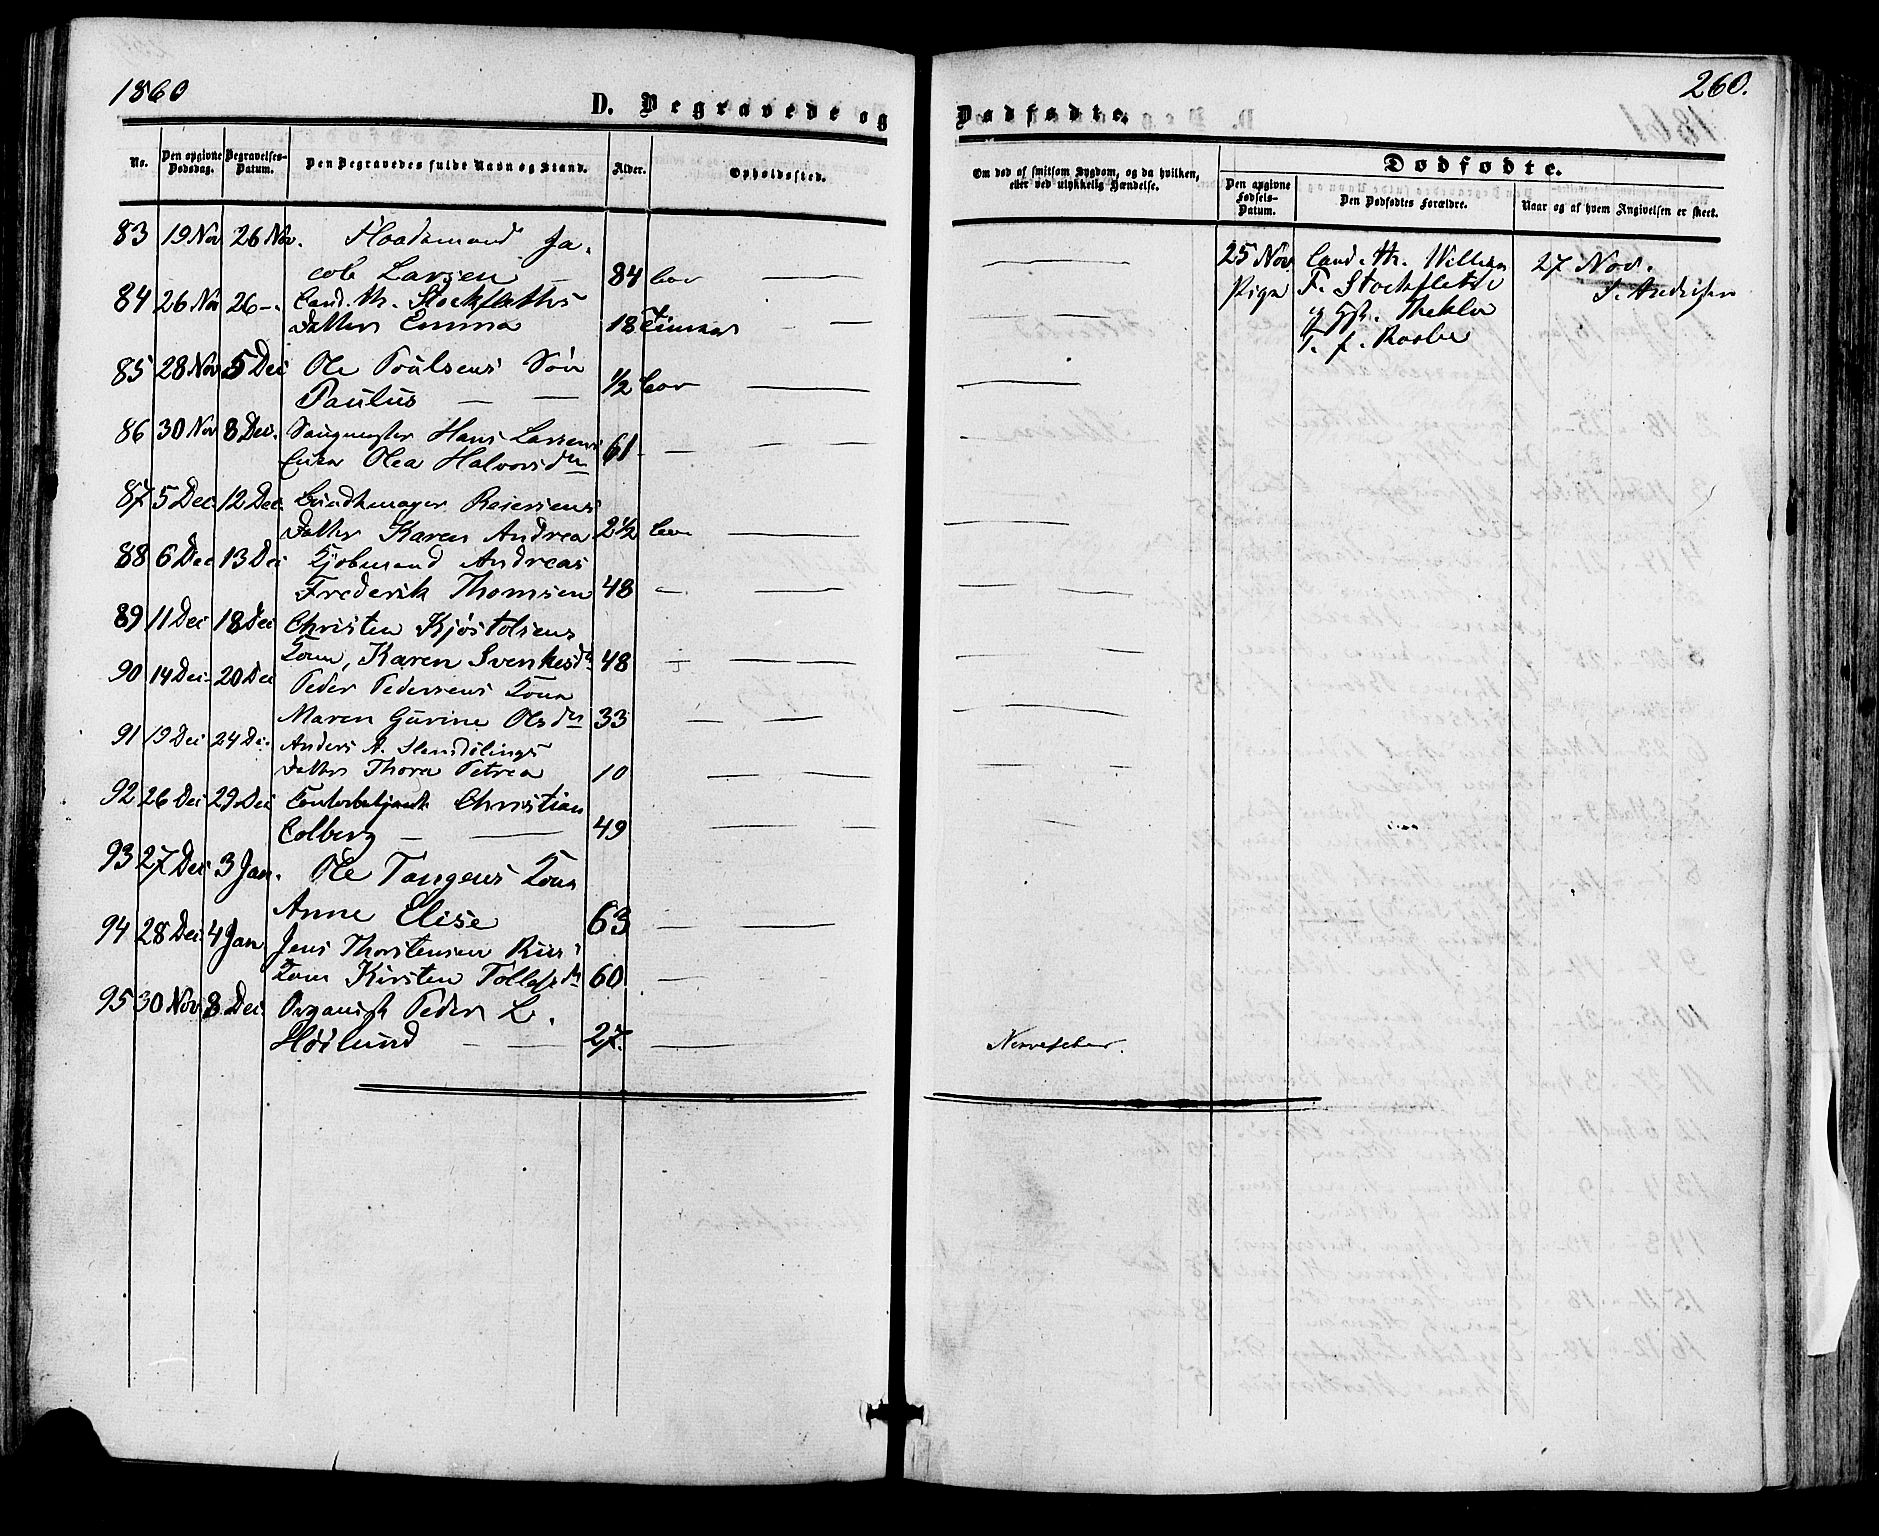 1860
D. Begravede og Dødfødte.
260.
No.
Den opgivne Dødsdag.
Begravelses-Datum.
Den Begravedes fulde Navn og Stand.
Alder.
Opholdssted.
Om død af smitsom Sygdom, og da hvilken, eller ved ulykkelig Hændelse.
Dødfødte.
Den opgivne Fødsels-Datum.
Den Dødfødtes Forældre.
Naar og af hvem Angivelsen er skeet.
83 19 Nov 26 Nov.
Jacob Larsen — 84
84 26 Nov 26 —. Cand. th. Stockfleths
Datter Emma 18 Timer
85 28 Nov 5 Dec Ole Poulsens Søn
Paulus — — 1/2
86 30 Nov 8 Dec. Hans Larsens
Enke Olea Halvorsdn 61
87 5 Dec. 12 Dec. Reiersens
Datter Karen Andrea 2 1/2
88 6 Dec 13 Dec Kjøbmand Andreas
Frederik Thomsen 48
89 11 Dec 18 Dec Christen Kjøstolsens
Kone, Karen Svenkesdn 48
90 14 Dec. 20 Dec
Peder Pedersens Kone
Maren Gurine Olsdn 33
91 19 Dec 24 Dec. Anders A.
Datter Thora Petrea 10
92 26 Dec 29 Dec Contorbetjent Christian
Colberg — 49
93 27 Dec 3 Jan. Ole Tangens Kone
Anne Elise 63
94 28 Dec 4 Jan. Jens Thorstensen Riis's
Kone Kirsten 60
95 30 Nov 8 Dec. Organist Peder L.
Høilund — — 27.
Nervefeber.
25 Nov
Pige
Cand. th. Wilhelm
F. Stockfleth
og Hst. Thekla
T. f.
27 Nov.